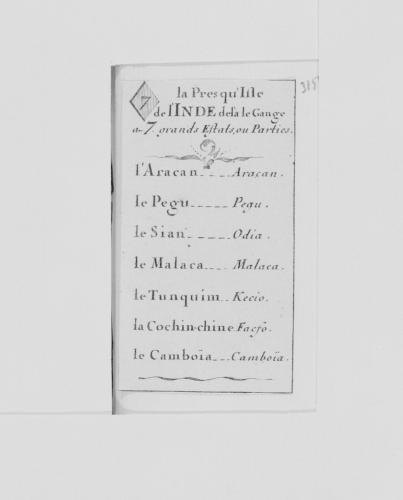 7
la Presqu'Isle
de l'INDE dela le Gange
a 7 grands Estats, ou Parties.
l'Aracan ---- Aracan.
le Pegu ----- Pegu.
le Sian ----- Odia.
le Malaca ---- Malaca.
le Tunquim -- Kecio.
la Cochin-chine Facfo.
le Camboïa --- Camboïa.